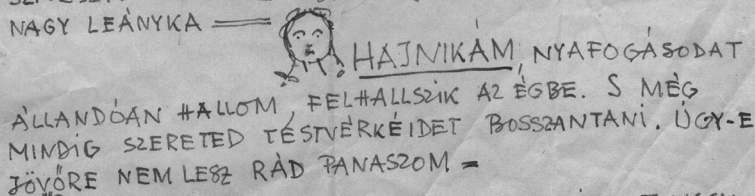 NAGY LEÁNYKA
HAJNIKÁM, NYAFOGÁSODAT
ÁLLANDÓAN HALLOM, FELHALLSZIK AZ ÉGBE. S MÉG
MINDIG SZERETED TESTVÉRKÉIDET BOSSZANTANI. ÚGY-E
JÖVŐRE NEM LESZ RÁD PANASZOM =